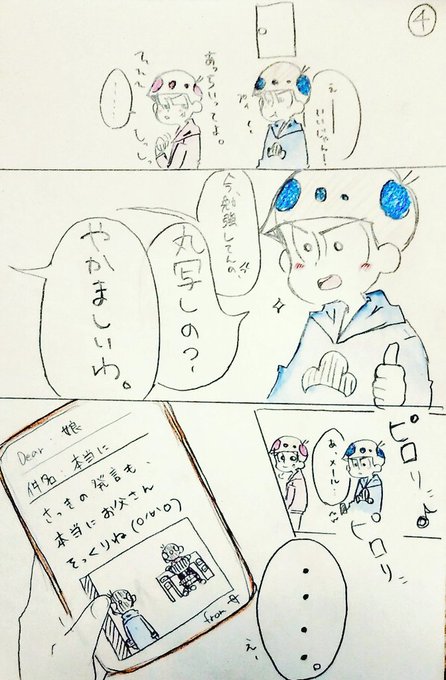 ④
えーーー
いいじゃん！
あっちいってよ。
てってん
・・・・・
しっしっ
今、勉強してんの、
丸写しの？
やかましいわ。
ピロリ♪
ピロリ
あ、メール…
Dear. 娘
件名：本当に
さっきの発言も、
本当にお父さん
そっくりね(ο/ω/ο)
from 母
・・・・。
え…